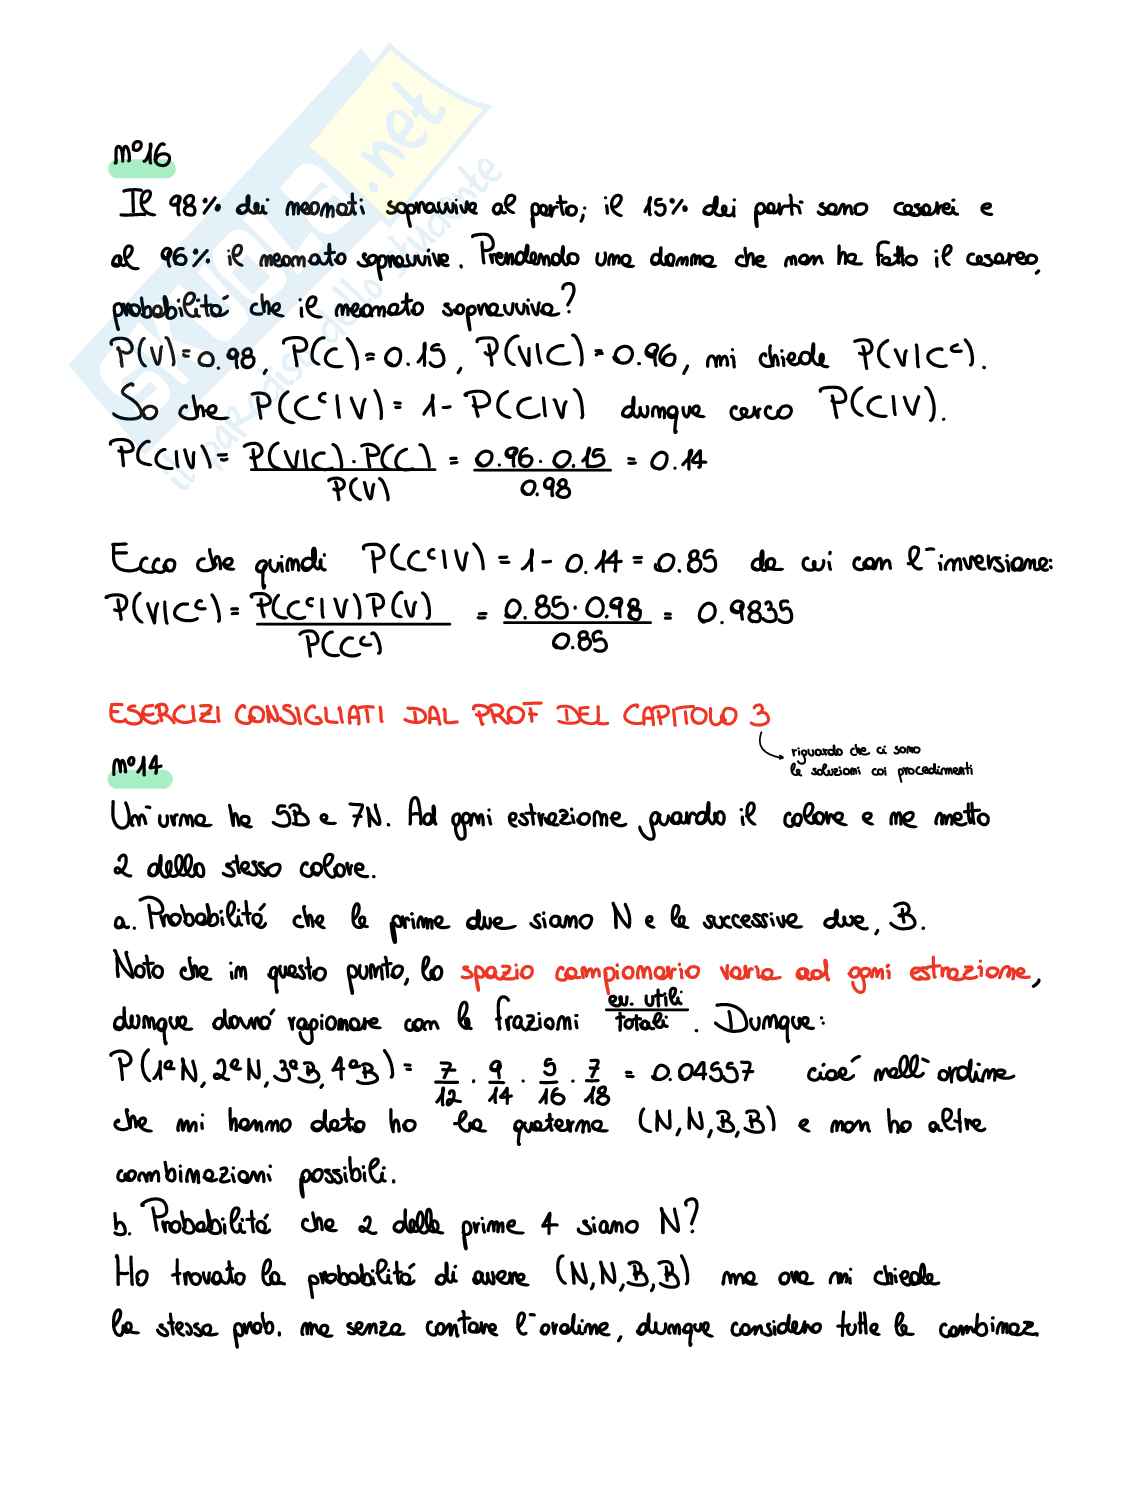 n°16
Il 98% dei neonati sopravvive al parto; il 15% dei parti sono cesarei e
al 96% il neonato sopravvive. Prendendo una donna che non ha fatto il cesareo,
probabilità che il neonato sopravviva?
P(V)=0.98, P(C)=0.15, P(V|C)=0.96, mi chiede P(V|Cᶜ).
So che P(Cᶜ|V)= 1- P(C|V) dunque cerco P(C|V).
P(C|V)= P(V|C)·P(C) / P(V) = 0.96·0.15 / 0.98 = 0.14
Ecco che quindi P(Cᶜ|V)=1-0.14=0.85 da cui con l'inversione:
P(V|Cᶜ)= P(Cᶜ|V)P(V) / P(Cᶜ) = 0.85·0.98 / 0.85 = 0.9835
ESERCIZI CONSIGLIATI DAL PROF DEL CAPITOLO 3
riguardo che ci sono
le soluzioni coi procedimenti
n°14
Un'urna ha 5B e 7N. Ad ogni estrazione guardo il colore e ne metto
2 dello stesso colore.
a. Probabilità che le prime due siano N e le successive due, B.
Noto che in questo punto, lo spazio campionario varia ad ogni estrazione,
dunque dovrò ragionare con le frazioni ev. utili / totali. Dunque:
P(1ªN, 2ªN, 3ªB, 4ªB)= 7/12 · 9/14 · 5/16 · 7/18 = 0.04557 cioè nell'ordine
che mi hanno dato ho la quaterna (N,N,B,B) e non ho altre
combinazioni possibili.
b. Probabilità che 2 delle prime 4 siano N?
Ho trovato la probabilità di avere (N,N,B,B) ma ora mi chiede
la stessa prob. ma senza contare l'ordine, dunque considero tutte le combinaz.
SKUOLA.net
il paradiso dello studente